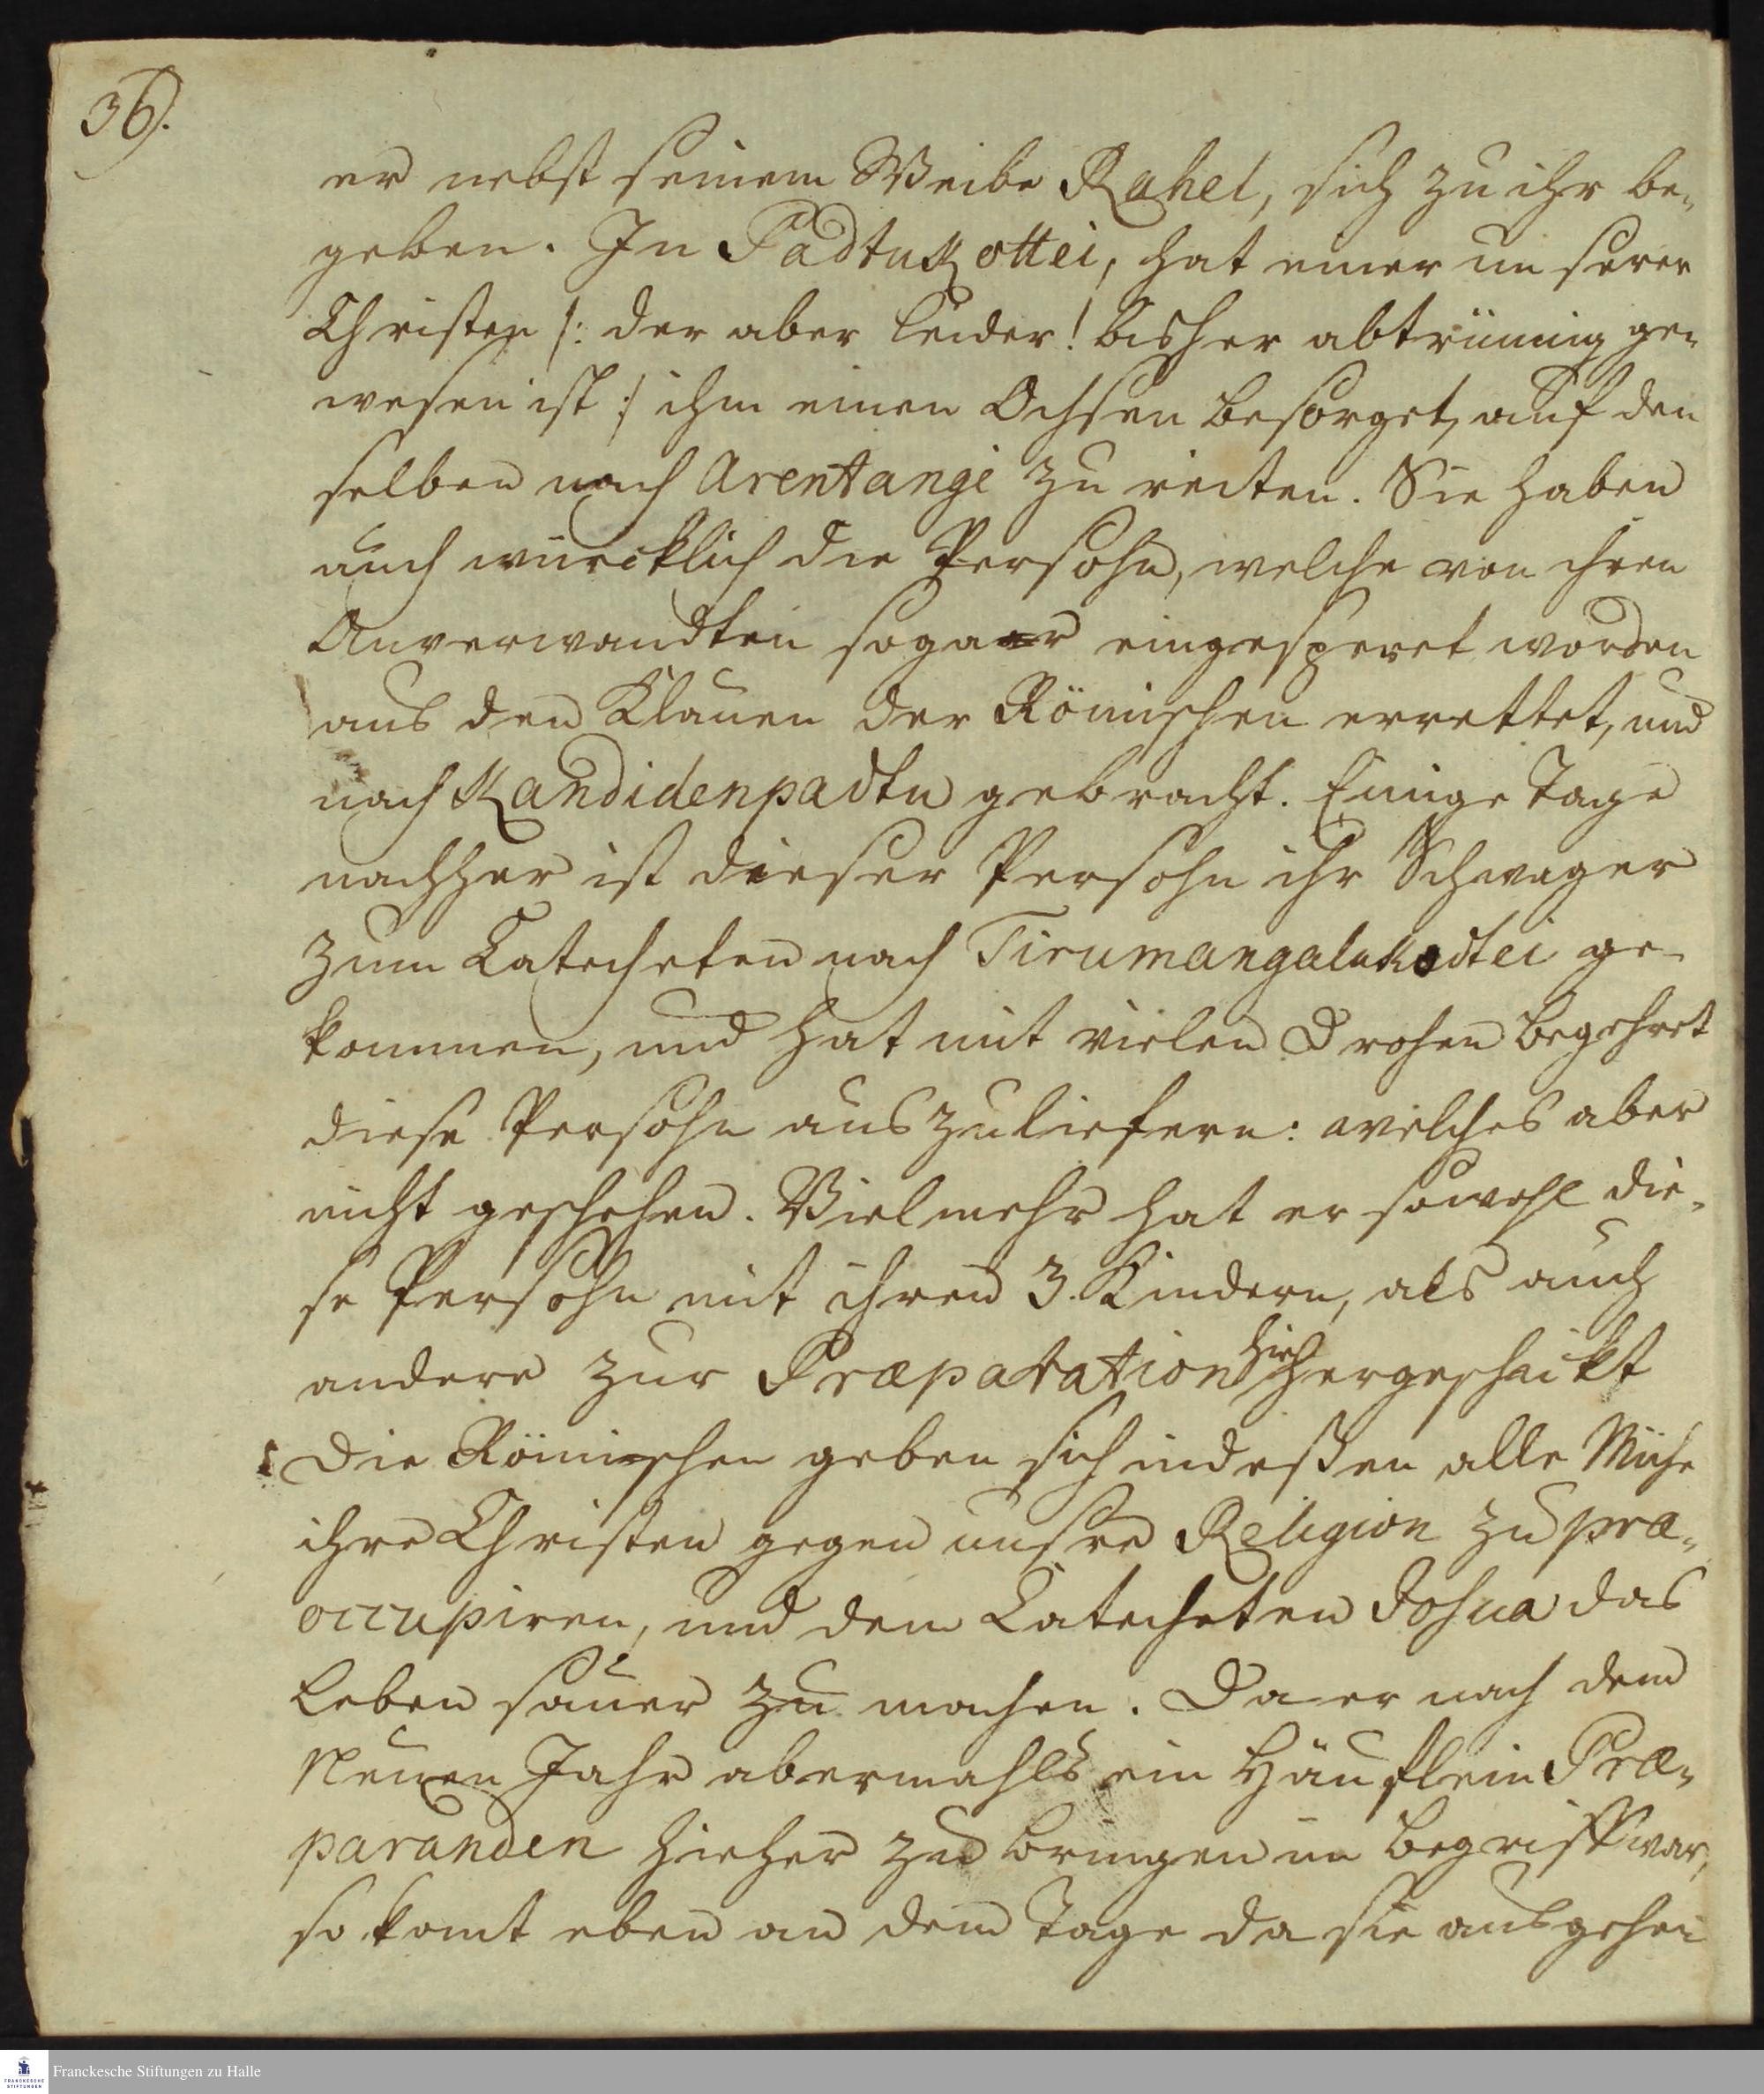 36.
er nebst seinem Weibe Rahel, sich zu ihr be-
geben. In Padtukottei, hat einer unserer
Christen /: der aber leider! bisher abtrünnig ge-
wesen ist :/ ihm einen Ochsen besorget, auf den
selben nach Arentangi zu reiten. Sie haben
auch würcklich die Persohn, welche von ihren
Anverwandten sogar eingesperret worden
aus den Klauen der Römischen errettet, und
nach Kandidenpadtu gebracht. Einige Tage
nachher ist dieser Persohn ihr Schwager
zum Catecheten nach Tirumangalakodtei ge-
kommen, und hat mit vielen Drohen begehret
diese Persohn auszuliefern: welches aber
nicht geschehen. Vielmehr hat er sowohl die-
se Persohn mit ihren 3. Kindern, als auch
andere zur Præparation hieher geschickt
Die Römischen geben sich indeßen alle Mühe
ihre Christen gegen unsre Religion zu præ-
occupiren, und dem Catecheten Josua das
Leben sauer zu machen. Da er nach dem
Neuen Jahr abermahls ein Häuflein Præ-
paranden hieher zu bringen im Begriff war,
so komt eben an dem Tage da sie ausgehen
Franckesche Stiftungen zu Halle
FRANCKESCHE
STIFTUNGEN